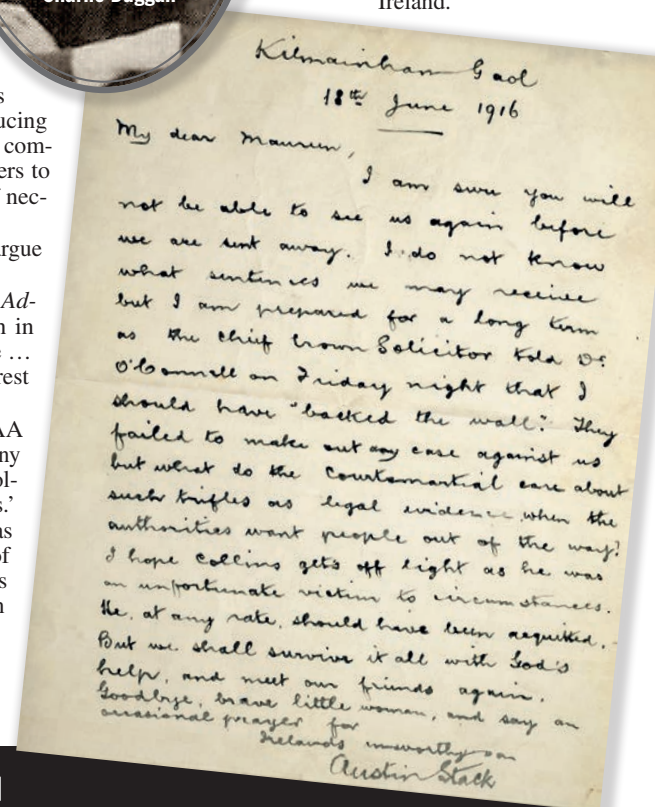 Charlie Duggan
Ireland.
s
ucing
com-
ers to
nec-
argue
Ad-
n in
…
rest
AA
ny
ol-
s.’
as
of
s
n
Kilmainham Gaol
18th June 1916
My dear Maureen,
I am sure you will
not be able to see us again before
we are sent away. I do not know
what sentences we may receive
but I am prepared for a long term
as the chief Crown Solicitor told Dr.
O'Connell on Friday night that I
should have "backed the wall". They
failed to make out any case against us
but what do the Courtsmartial care about
such trifles as legal evidence when the
authorities want people out of the way?
I hope Collins gets off light as he was
an unfortunate victim to circumstances.
He, at any rate, should have been acquitted.
But we shall survive it all with God's
help, and meet our friends again.
Goodbye, brave little woman, and say an
occasional prayer for
Ireland's unworthy son
Austin Stack